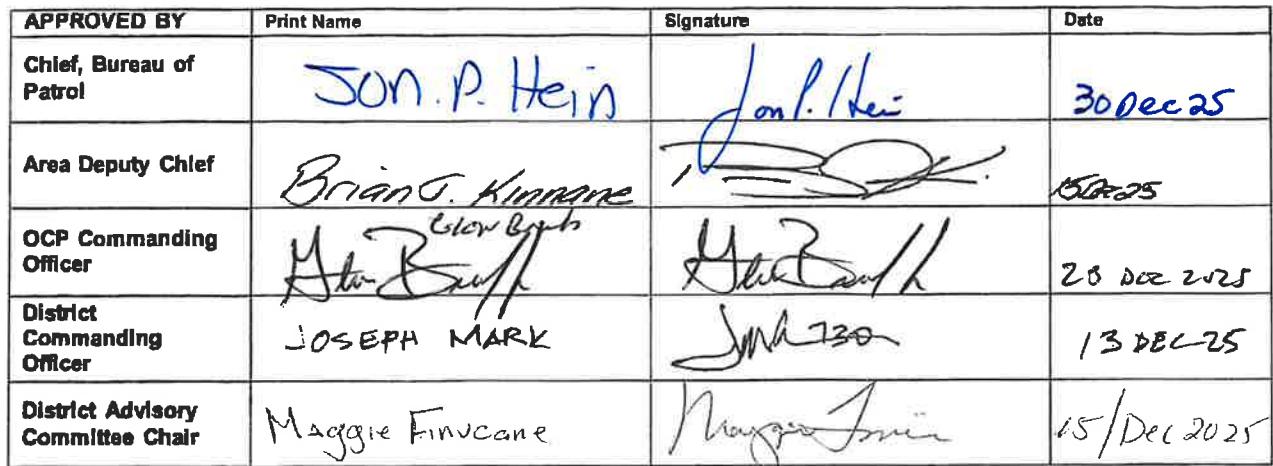 APPROVED BY Print Name Signature Date
Chief, Bureau of
Patrol
JON. P. Hein Jon P. Hein 30 Dec 25
Area Deputy Chief Brian J. Kinnane 15 Dec 25
OCP Commanding
Officer
Glenn 2025
District
Commanding
Officer
JOSEPH MARK 730 13 DEC 25
District Advisory
Committee Chair
Maggie Finucane Maggie 15/Dec 2025